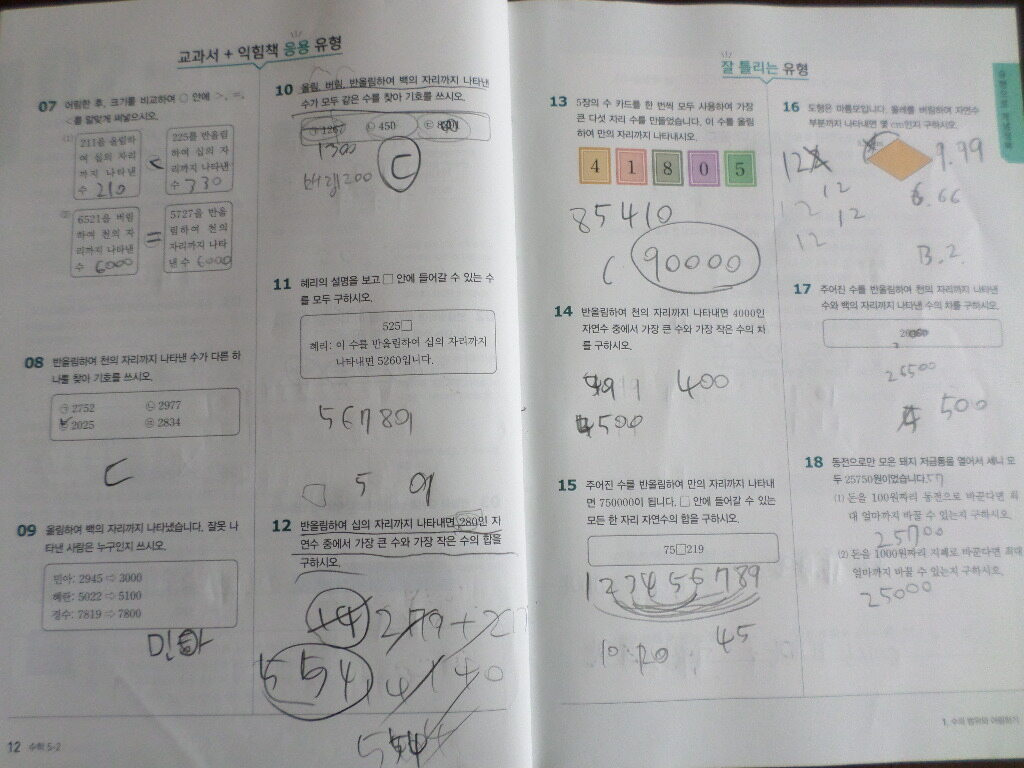 교과서 + 익힘책 응용 유형
07 어림한 후, 크기를 비교하여 ○ 안에 >, =,
<를 알맞게 써넣으시오.
(1)
211을 올림하
여 십의 자리
까지 나타낸
수 210
<
225를 반올림
하여 십의 자
리까지 나타낸
수 330
(2)
6521을 버림
하여 천의 자
리까지 나타낸
수 6000
=
5727을 반올
림하여 천의
자리까지 나타
낸 수 6000
08 반올림하여 천의 자리까지 나타낸 수가 다른 하
나를 찾아 기호를 쓰시오.
㉠ 2752 ㉡ 2977
2025 ㉣ 2834
ㄷ
09 올림하여 백의 자리까지 나타냈습니다. 잘못 나
타낸 사람은 누구인지 쓰시오.
민아: 2945 ⇨ 3000
혜란: 5022 ⇨ 5100
경수: 7819 ⇨ 7800
민아
12 수학 5-2
10 올림, 버림, 반올림하여 백의 자리까지 나타낸
수가 모두 같은 수를 찾아 기호를 쓰시오.
㉠ 1267 ㉡ 450 ㉢
1300
ㄷ
200
11 혜리의 설명을 보고 □ 안에 들어갈 수 있는 수
를 모두 구하시오.
525□
혜리: 이 수를 반올림하여 십의 자리까지
나타내면 5260입니다.
56789
5 9
12 반올림하여 십의 자리까지 나타내면 280인 자
연수 중에서 가장 큰 수와 가장 작은 수의 합을
구하시오.
44 279+
554
잘 틀리는 유형
13 5장의 수 카드를 한 번씩 모두 사용하여 가장
큰 다섯 자리 수를 만들었습니다. 이 수를 올림
하여 만의 자리까지 나타내시오.
4 1 8 0 5
85410
( 90000
14 반올림하여 천의 자리까지 나타내면 4000인
자연수 중에서 가장 큰 수와 가장 작은 수의 차
를 구하시오.
400
4500
15 주어진 수를 반올림하여 만의 자리까지 나타내
면 750000이 됩니다. □ 안에 들어갈 수 있는
모든 한 자리 자연수의 합을 구하시오.
75□219
45
16 도형은 마름모입니다. 둘레를 버림하여 자연수
부분까지 나타내면 몇 cm인지 구하시오.
9.99
12
12
12
12
6.66
17 주어진 수를 반올림하여 천의 자리까지 나타낸
수와 백의 자리까지 나타낸 수의 차를 구하시오.
26500
500
18 동전으로만 모은 돼지 저금통을 열어서 세니 모
두 25750원이었습니다.
(1) 돈을 100원짜리 동전으로 바꾼다면 최
대 얼마까지 바꿀 수 있는지 구하시오.
25700
(2) 돈을 1000원짜리 지폐로 바꾼다면 최대
얼마까지 바꿀 수 있는지 구하시오.
25000
1. 수의 범위와 어림하기